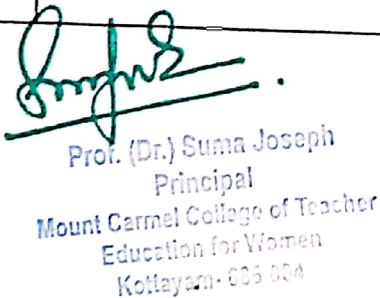 Prof. (Dr.) Suma Joseph
Principal
Mount Carmel College of Teacher
Education for Women
Kottayam- 686 004